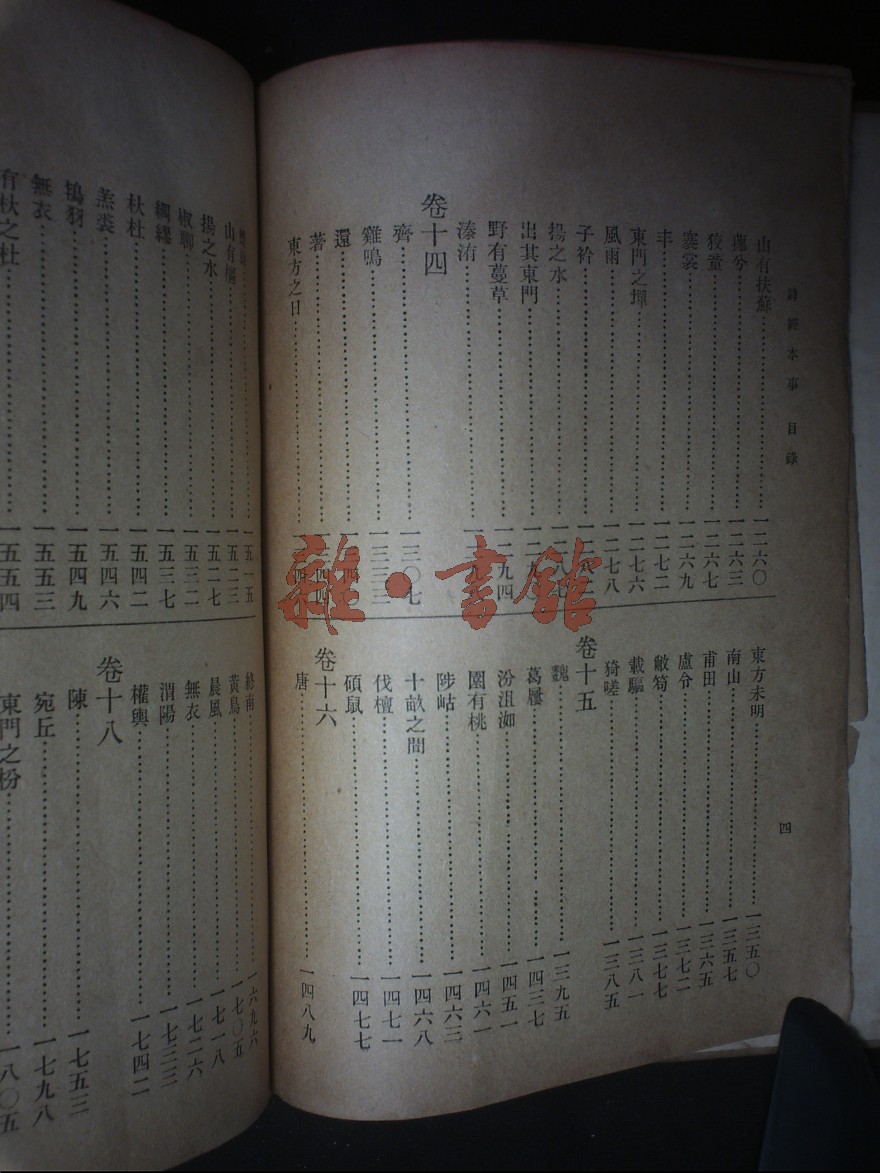 詩經本事 目錄
四
山有扶蘇……一二六〇
蘀兮……一二六三
狡童……一二六七
褰裳……一二六九
丰……一二七二
東門之墠……一二七六
風雨……一二七八
子衿
揚之水
出其東門
野有蔓草
溱洧
卷十四
齊……一三〇七
雞鳴
還
著
東方之日
東方未明……一三五〇
南山……一三五七
甫田……一三六五
盧令……一三七二
敝笱……一三七七
載驅……一三八一
猗嗟……一三八五
卷十五
魏……一三九五
葛屨……一四三七
汾沮洳……一四五一
園有桃……一四六一
陟岵……一四六三
十畝之間……一四六八
伐檀……一四七一
碩鼠……一四七七
卷十六
唐……一四八九
一五一五
山有樞……一五二三
揚之水……一五二七
椒聊……一五三二
綢繆……一五三七
杕杜……一五四二
羔裘……一五四六
鴇羽……一五四九
無衣……一五五三
有杕之杜……一五五四
終南……一六九六
黃鳥……一七〇五
晨風……一七一八
無衣……一七二六
渭陽……一七三三
權輿……一七四二
卷十八
陳……一七五三
宛丘……一七九八
東門之枌……一八〇五
雜·書館